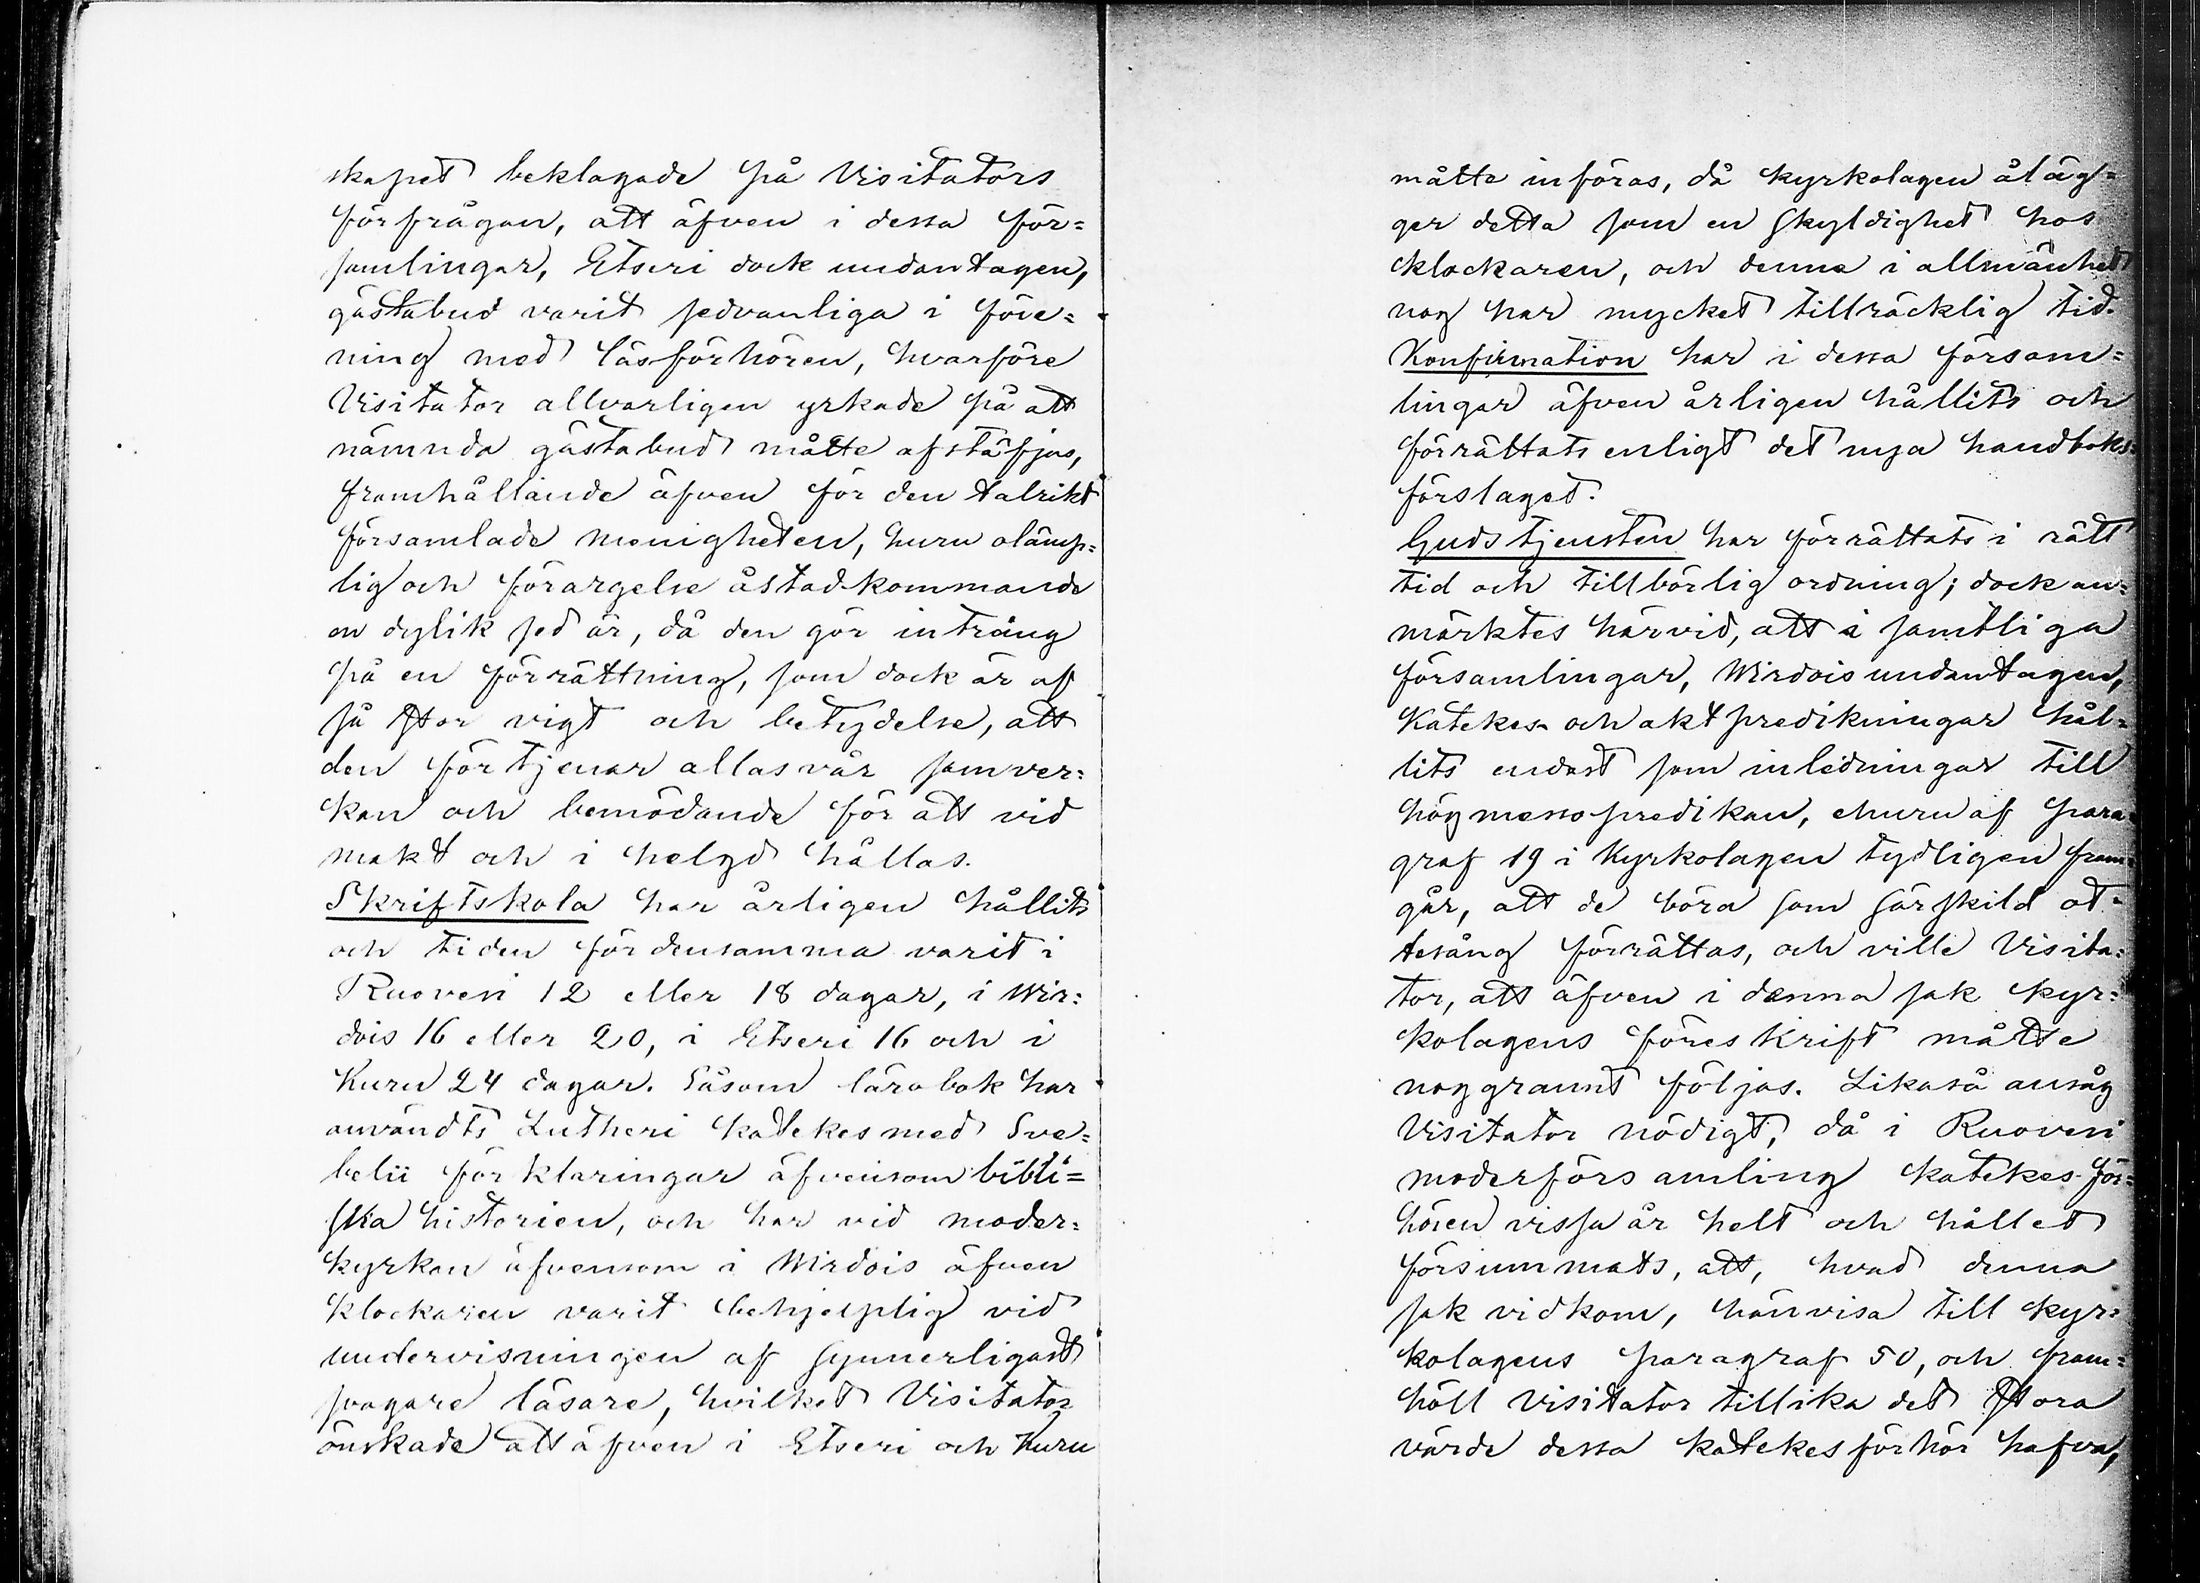 skapet beklagade på Visitators
förfrågan, att äfven i dessa för=
samlingar, Etseri dock undantagen,
gästabud varit sedvanliga i före=
ning med läsförhören, hvarföre
Visitator allvarligen yrkade på att
nämnda gästabud måtte afstäfjas,
framhållande äfven för den talrikt
församlade menigheten, huru olämp=
lig och förargelse åstadkommande
en dylik sed är, då den gör intrång
på en förrättning, som dock är af
så stor vigt och betydelse, att
den förtjenar allas vår samver=
kan och bemödande för att vid
makt och i helgd hållas.
Skriftskola har årligen hållits
och tiden för densamma varit i
Ruovesi 12 eller 18 dagar, i Wir=
dois 16 eller 20, i Etseri 16 och i
Kuru 24 dagar. Såsom lärobok har
användts Lutheri katekes med Sve=
belii förklaringar äfvensom bibli=
ska historien, och har vid moder=
kyrkan äfvensom i Wirdois äfven
klockaren varit behjelplig vid
undervisningen af synnerligast
svagare läsare, hvilket Visitator
önskade att äfven i Etseri och Kuru
måtte införas, då kyrkolagen åläg=
ger detta som en skyldighet hos
klockaren, och denne i allmänhet
nog har mycket tillräcklig tid.
Konfirmation har i dessa försam=
lingar äfven årligen hållits och
förrättats enligt det nya handboks=
förslaget.
Gudstjensten har förrättats i rätt
tid och tillbörlig ordning; dock an=
märktes härvid, att i samtliga
församlingar, Wirdois undantagen,
Katekes- och aktpredikningar hål=
lits endast som inledningar till
högmessopredikan, ehuru af para=
graf 19 i Kyrkolagen tydligen fram=
går, att de böra som särskild ot=
tesång förrättas, och ville Visita=
tor, att äfven i denna sak kyr=
kolagens föreskrift måtte
noggrannt följas. Likaså ansåg
Visitator nödigt, då i Ruovesi
moderförsamling katekesför=
hören vissa år helt och hållet
försummats, att, hvad denna
sak vidkom, hänvisa till kyr=
kolagens paragraf 50, och fram=
höll Visitator tillika det stora
värde dessa katekesförhör hafva,